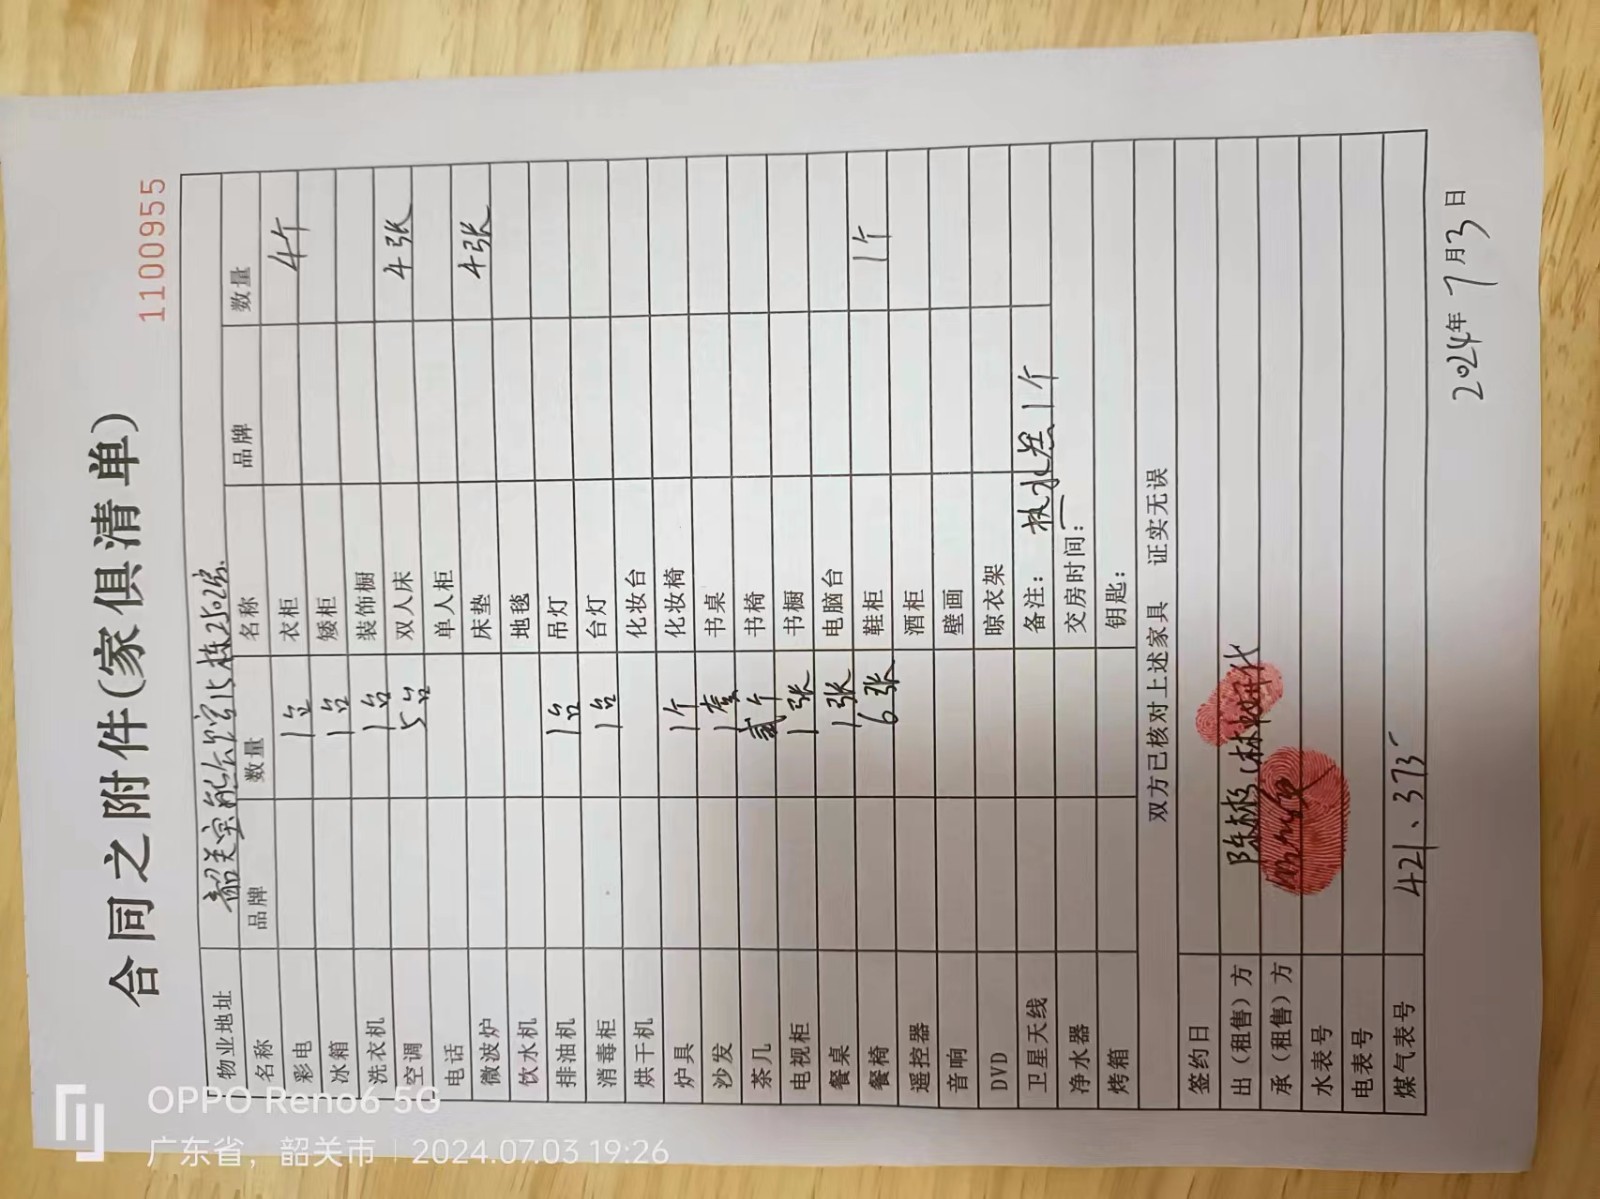 合同之附件(家俱清单)
1100955
物业地址 韶关 2栋2502房
名称 品牌 数量 名称 品牌 数量
彩电 1台 衣柜 4个
冰箱 1台 矮柜
洗衣机 1台 装饰橱
空调 5台 双人床 4张
电话 单人柜
微波炉 床垫 4张
饮水机 地毯
排油机 1台 吊灯
消毒柜 1台 台灯
烘干机 化妆台
炉具 1个 化妆椅
沙发 1套 书桌
茶几 贰个 书椅
电视柜 1张 书橱
餐桌 1张 电脑台
餐椅 6张 鞋柜 1个
遥控器 酒柜
音响 壁画
DVD 晾衣架
卫星天线 备注: 热水器1个
净水器 交房时间:
烤箱 钥匙:
双方已核对上述家具 证实无误
签约日
出(租售)方
承(租售)方
水表号
电表号
煤气表号 421、375
2024年7月3日
OPPO Reno6 5G
广东省,韶关市 | 2024.07.03 19:26